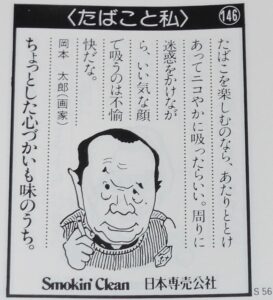 〈たばこと私〉
146
たばこを楽しむのなら、あたりととけ
あってニコやかに吸ったらいい。周りに
迷惑をかけなが
ら、いい気な顔
で吸うのは不愉
快だな。
岡本 太郎(画家)
ちょっとした心づかいも味のうち。
Smokin' Clean 日本専売公社
S 56